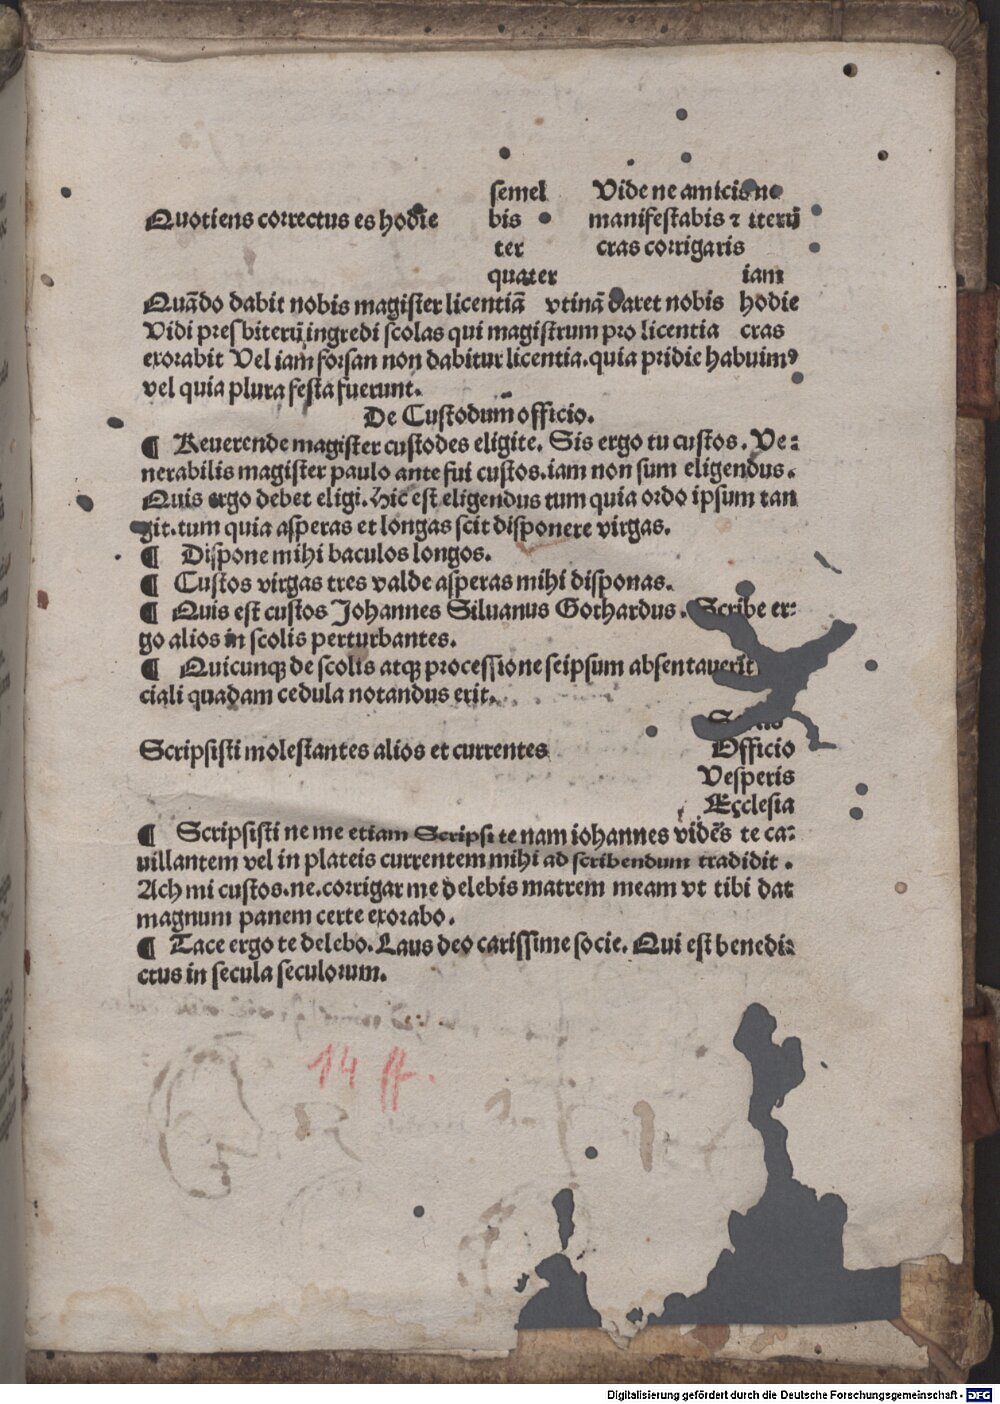 semel Vide ne amicis ne
Quotiens correctus es hodie bis manifestabis ⁊ iterū
ter cras corrigaris
quater iam
Quādo dabit nobis magister licentiā vtinā daret nobis hodie
Vidi presbiterū ingredi scolas qui magistrum pro licentia cras
exorabit Vel iam forsan non dabitur licentia. quia pridie habuimꝰ
vel quia plura festa fuerunt.
De Custodum officio.
¶ Reuerende magister custodes eligite. Sis ergo tu custos. Ve:
nerabilis magister paulo ante fui custos. iam non sum eligendus.
Quis ergo debet eligi. Hic est eligendus tum quia ordo ipsum tan
git. tum quia asperas et longas scit disponere virgas.
¶ Dispone mihi baculos longos.
¶ Custos virgas tres valde asperas mihi disponas.
¶ Quis est custos Johannes Siluanus Gothardus. Scribe er:
go alios in scolis perturbantes.
¶ Quicunqꝫ de scolis atqꝫ processione seipsum absentauerit
ciali quadam cedula notandus erit.
Scripsisti molestantes alios et currentes Officio
Vesperis
Ecclesia
¶ Scripsisti ne me etiam Scripsi te nam iohannes vidēs te ca:
uillantem vel in plateis currentem mihi ad scribendum tradidit.
Ach mi custos. ne. corrigar me delebis matrem meam vt tibi dat
magnum panem certe exorabo.
¶ Tace ergo te delebo. Laus deo carissime socie. Qui est benedi:
ctus in secula seculorum.
14 ff.
Digitalisierung gefördert durch die Deutsche Forschungsgemeinschaft - DFG